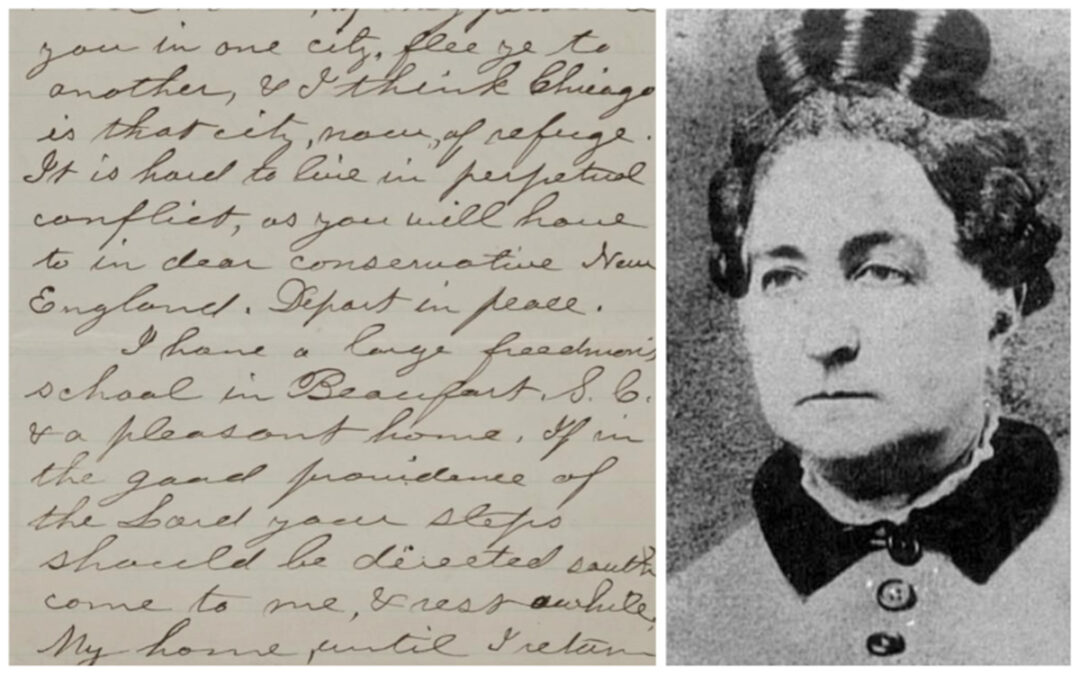 you in one city, flee ye to
another, & I think Chicago
is that city, now, of refuge.
It is hard to live in perpetual
conflict, as you will have
to in dear conservative New
England. Depart in peace.
I have a large freedmen's
school in Beaufort. S. C.
& a pleasant home. If in
the good providence of
the Lord your steps
should be directed south
come to me, & rest awhile.
My home, until I return